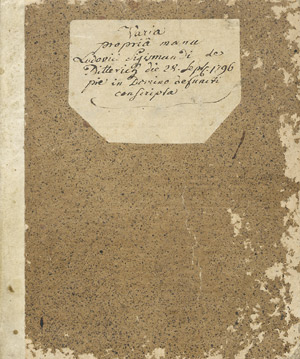 Varia
propriâ manu
Ludovici Sigismundi de
Ditterich die 28. Sept. 1796
pie in Domino defuncti
conscripta